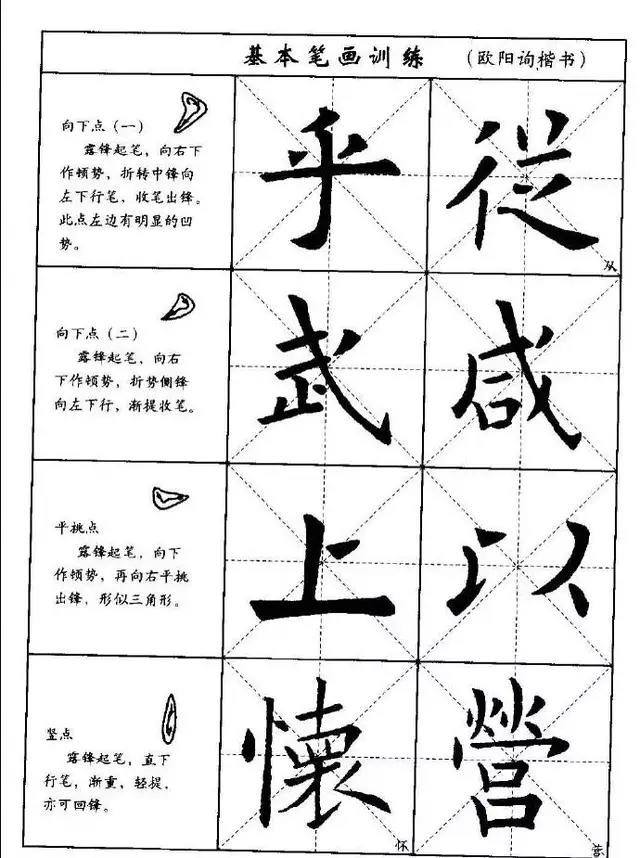 基本笔画训练 （欧阳询楷书）
向下点（一）
露锋起笔，向右下
作顿势，折转中锋向
左下行笔，收笔出锋。
此点左边有明显的凹
势。
乎 從
从
向下点（二）
露锋起笔，向右
下作顿势，折势侧锋
向左下行，渐提收笔。
武 咸
平挑点
露锋起笔，向下
作顿势，再向右平挑
出锋，形似三角形。
上 以
竖点
露锋起笔，直下
行笔，渐重，轻提，
亦可回锋。
懷 營
怀 营